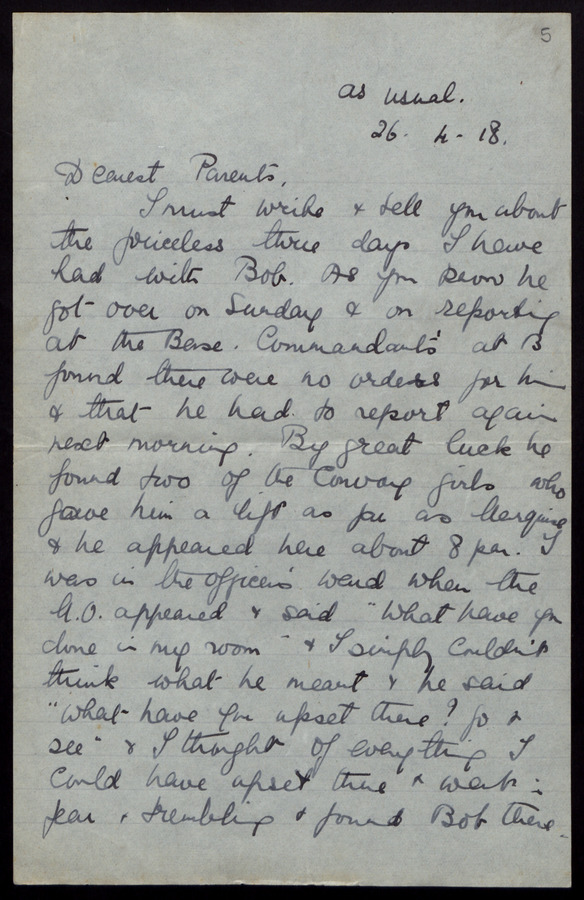 5
as usual.
26 - 4 - 18.
Dearest Parents,
I must write & tell you about
the priceless three days I have
had with Bob. As you know he
got over on Sunday & on reporting
at the Base Commandants' at B
found there were no orders for him
& that he had to report again
next morning. By great luck he
found two of the Convoy girls who
gave him a lift as far as
& he appeared here about 8 pm. I
was in the officers' ward when the
M.O. appeared & said "What have you
done in my room" & I simply couldn't
think what he meant & he said
"What have you upset there? Go &
see" & I thought of everything I
could have upset there & went in
fear & trembling & found Bob there.